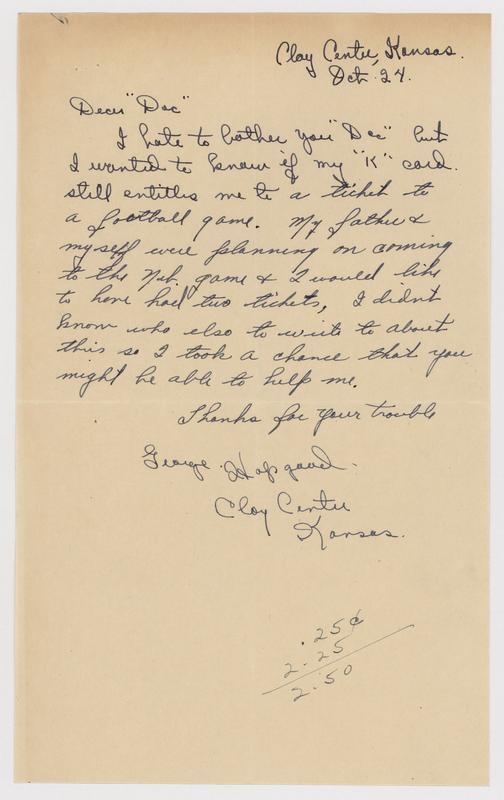 Clay Center, Kansas.
Oct. 24.
Dear "Doc"
I hate to bother you "Doc" but
I wanted to know if my "K" card
still entitles me to a ticket to
a football game. My father &
myself were planning on coming
to the Neb. game & I would like
to have had two tickets, I didn't
know who else to write to about
this so I took a chance that you
might be able to help me.
Thanks for your trouble
George Hapgood.
Clay Center
Kansas.
.25¢
2.25
2.50